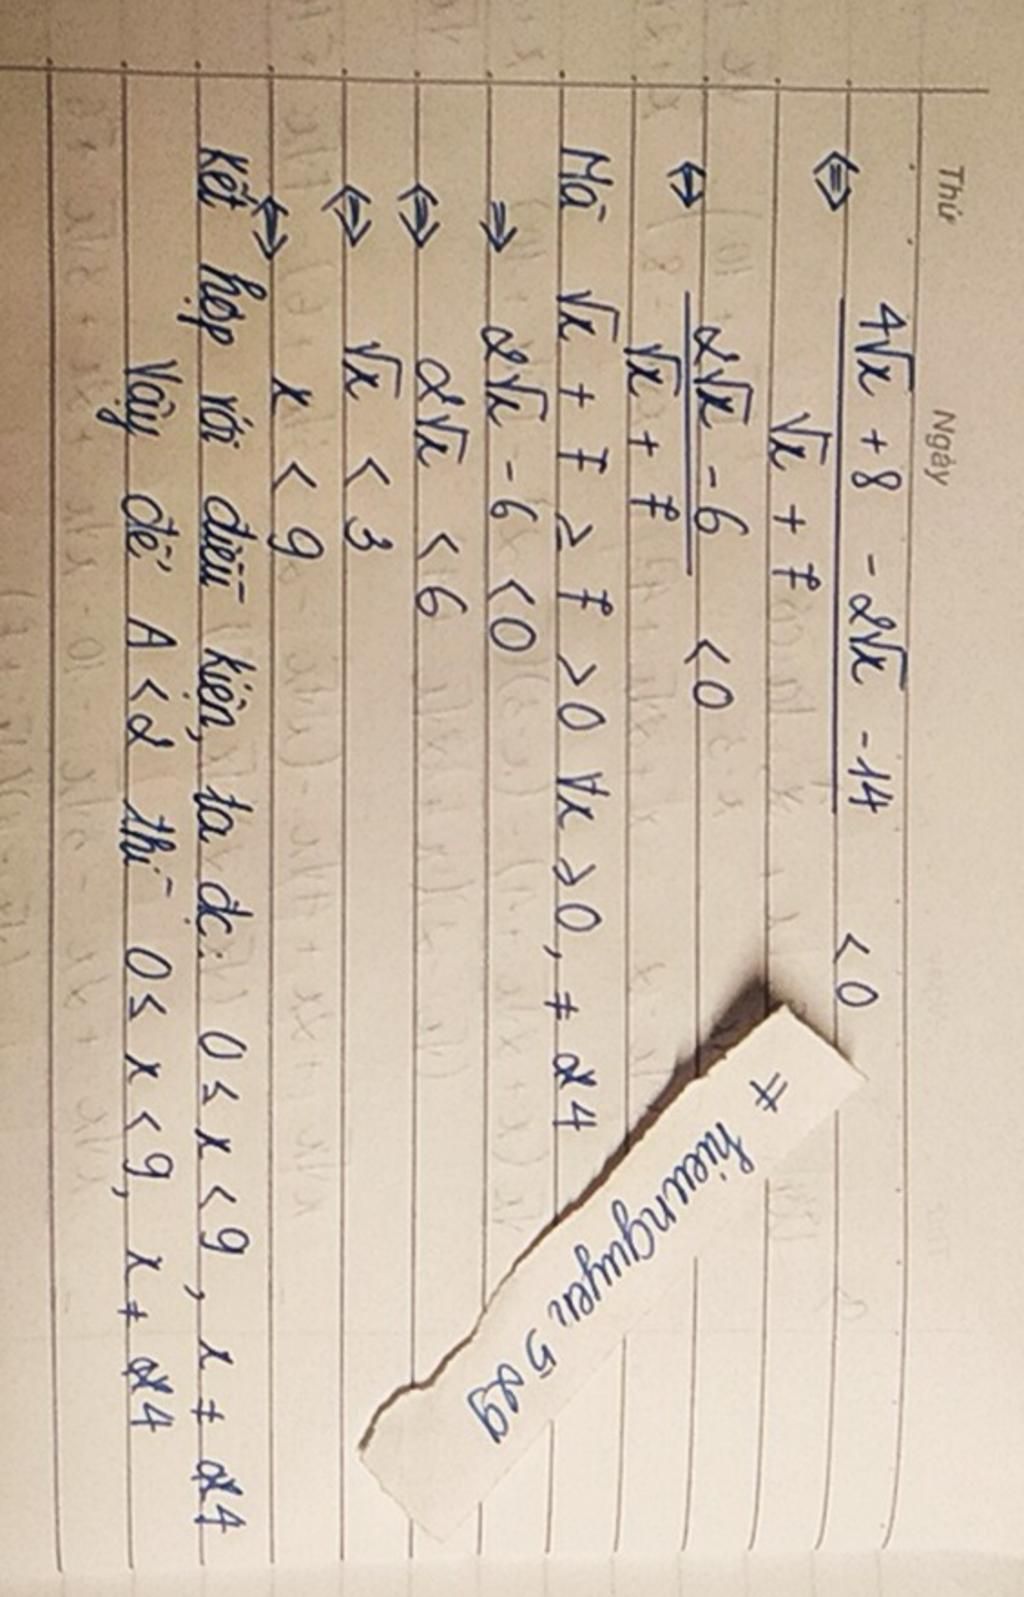 Thứ Ngày
⇔ (4√x + 8 - 2√x - 14)/(√x + 7) < 0
⇔ (2√x - 6)/(√x + 7) < 0
Mà √x + 7 ≥ 7 > 0 ∀x > 0, ≠ 4
⇒ 2√x - 6 < 0
⇔ 2√x < 6
⇔ √x < 3
⇔ x < 9
Kết hợp với điều kiện, ta đc: 0 ≤ x < 9, x ≠ 4
Vậy để A < 2 thì 0 ≤ x < 9, x ≠ 4
# hieunguyen 5 2g